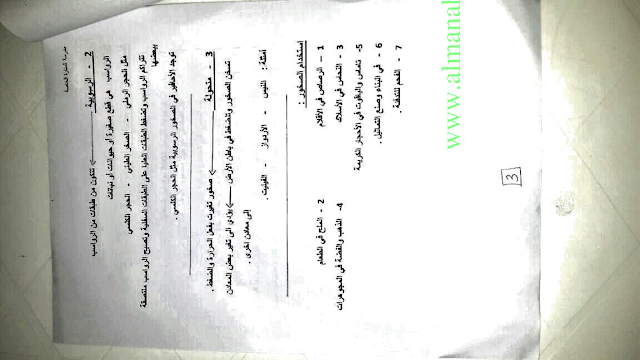 مدرسة المنارة الخاصة
2 - الرسوبية ← تتكون من طبقات من الرواسب
الرواسب هي قطع صغيرة أو حيوانات أو نباتات
مثل الحجر الرملي - الصخر الطيني - الحجر الكلسي
تتراكم الرواسب وتضغط الطبقات العليا على الطبقات السفلية وتصبح الرواسب ملتصقة
ببعضها
توجد الأحافير في الصخور الرسوبية مثل الحجر الكلسي .
3 - متحولة ← صخور تغيرت بفعل الحرارة والضغط .
تسخن الصخور وتنضغط في باطن الأرض ← يؤدي الى تغير بعض المعادن
إلى معادن أخرى .
أمثلة : النيس - الأردواز - الفيليت .
إستخدام الصخور :
1 - الرصاص في الأقلام 2 - الملح في الطعام
3 - النحاس في الأسلاك 4- الذهب والفضة في المجوهرات
5- الماس والياقوت في الأحجار الكريمة
6 - في البناء وصنع التماثيل .
7 - الفحم للتدفئة .
3
www.almanal